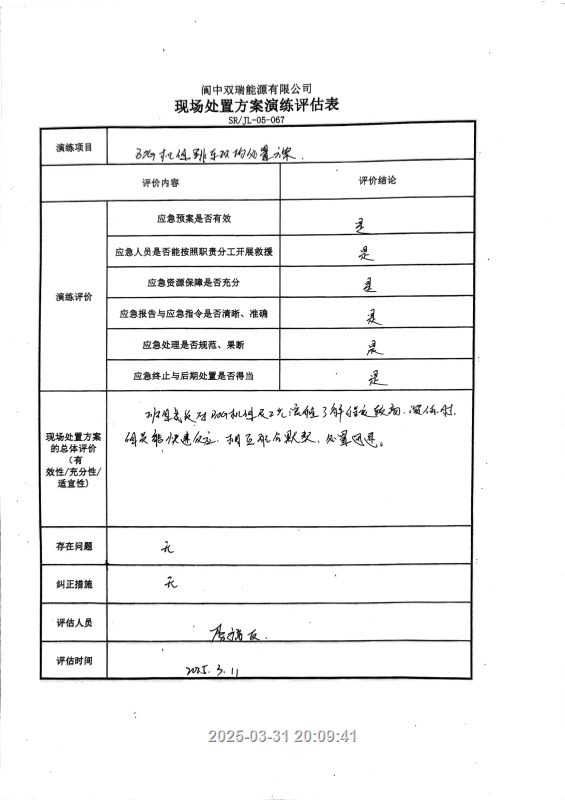 阆中双瑞能源有限公司
现场处置方案演练评估表
SR/JL-05-067
演练项目 BOG机组跳车 处置方案.
评价内容 评价结论
演练评价
应急预案是否有效 是
应急人员是否能按照职责分工开展救援 是
应急资源保障是否充分 是
应急报告与应急指令是否清晰、准确 是
应急处理是否规范、果断 是
应急终止与后期处置是否得当 是
现场处置方案
的总体评价
(有
效性/充分性/
适宜性)
班组成员对BOG机组及工艺流程了解
组员能快速反应, 相互配合默契, 处置迅速。
存在问题 无
纠正措施 无
评估人员
评估时间 2025.3.11
2025-03-31 20:09:41